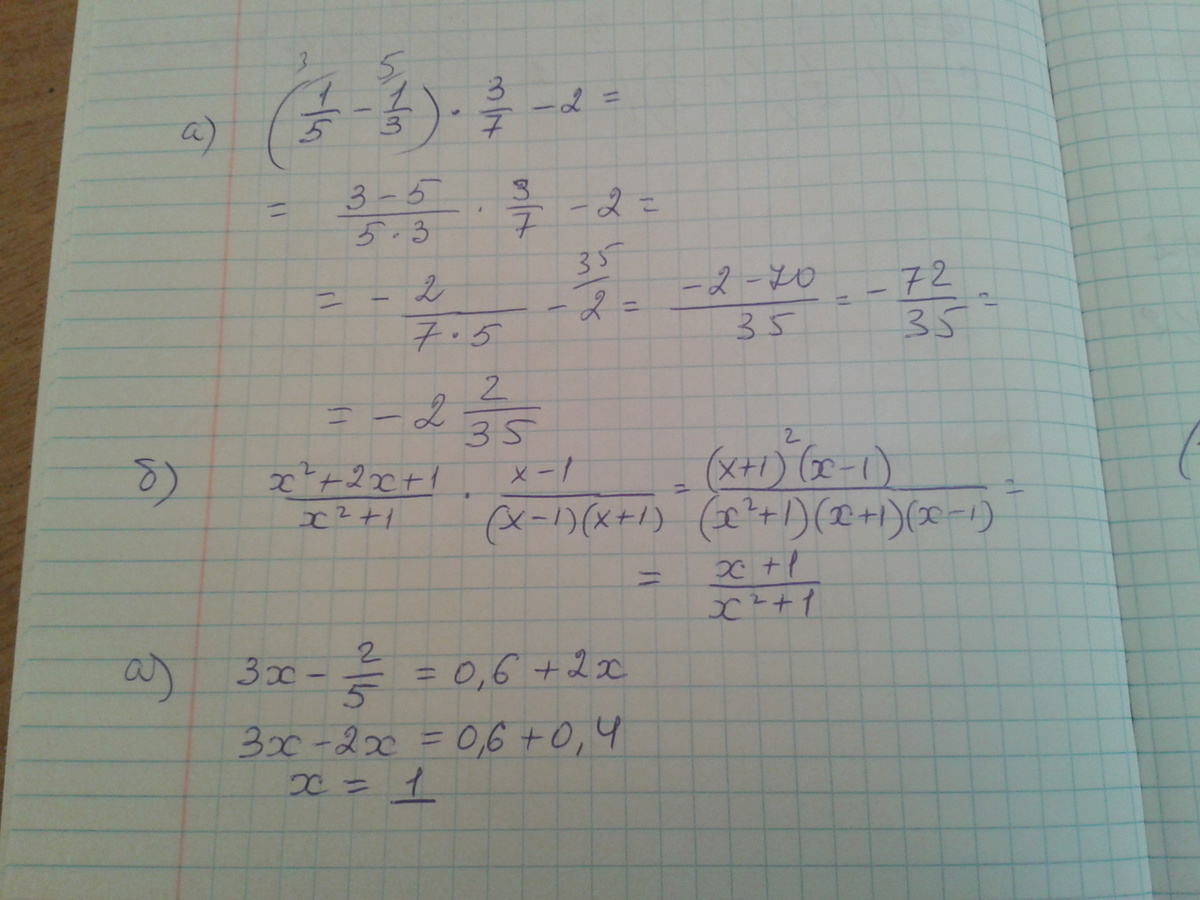 а) (1/5 - 1/3) · 3/7 - 2 =
= (3 - 5)/(5 · 3) · 3/7 - 2 =
= - 2/(7 · 5) - 2 = (-2 - 70)/35 = - 72/35 =
= - 2 2/35
б) (x² + 2x + 1)/(x² + 1) · (x - 1)/((x - 1)(x + 1)) = ((x+1)²(x - 1))/((x² + 1)(x + 1)(x - 1)) =
= (x + 1)/(x² + 1)
а) 3x - 2/5 = 0,6 + 2x
3x - 2x = 0,6 + 0,4
x = 1